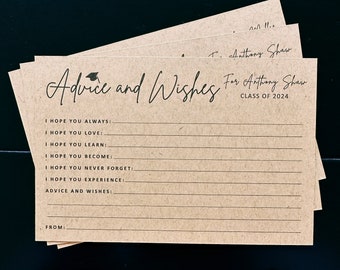 For Anthony Shaw
Advice and Wishes
For Anthony Shaw
CLASS OF 2024
I HOPE YOU ALWAYS:
I HOPE YOU LOVE:
I HOPE YOU LEARN:
I HOPE YOU BECOME:
I HOPE YOU NEVER FORGET:
I HOPE YOU EXPERIENCE:
ADVICE AND WISHES:
FROM: